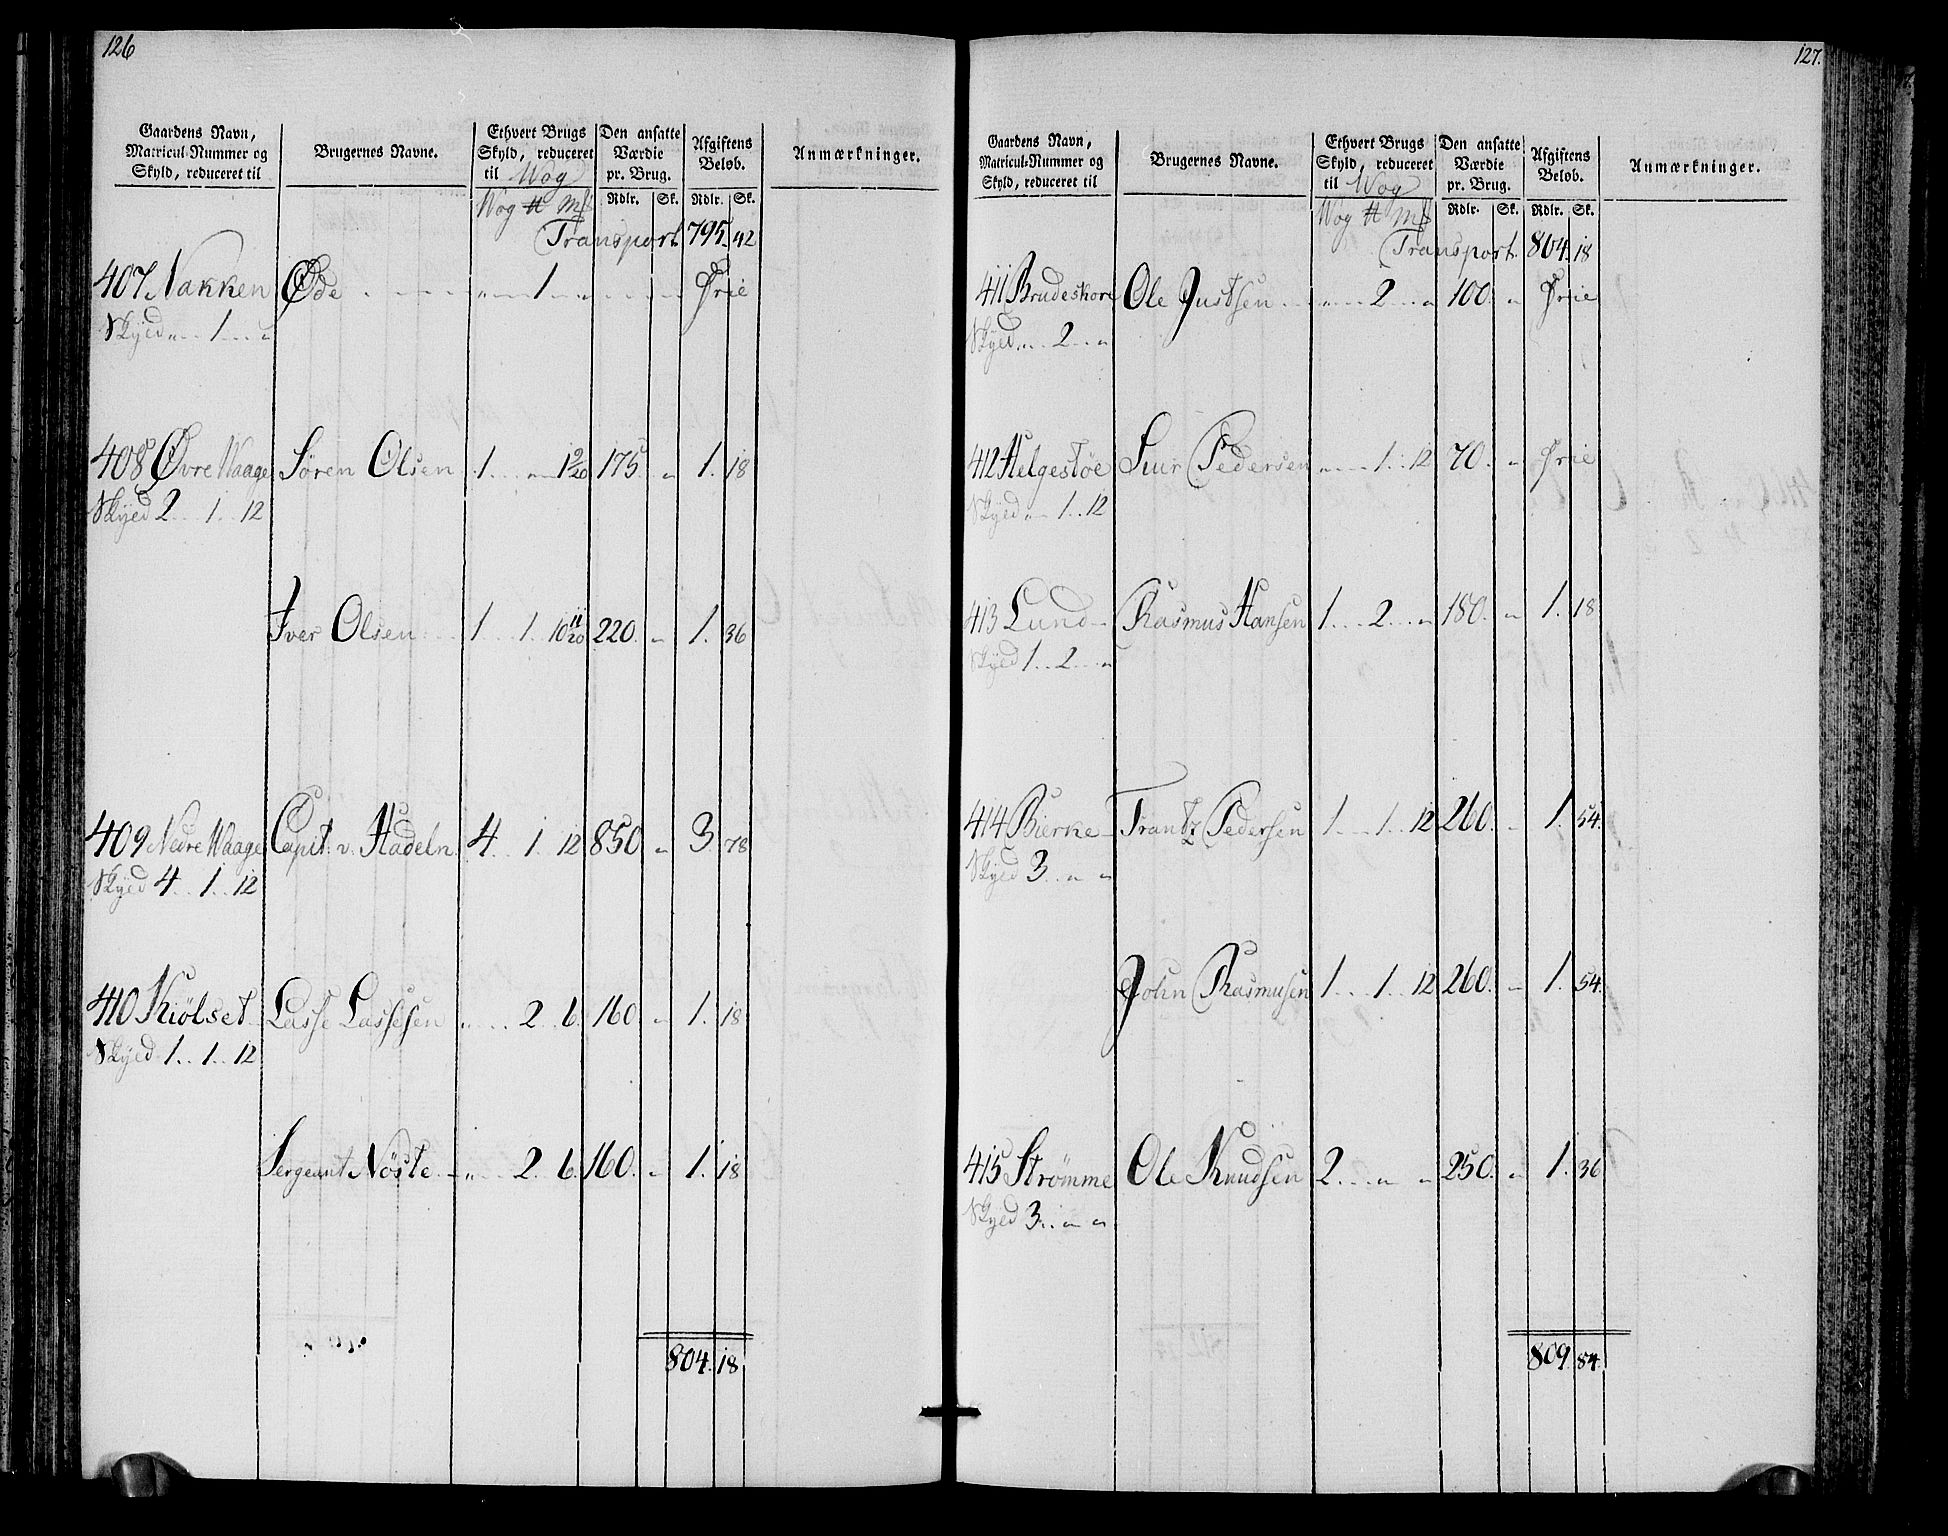 126
Gaardens Navn, Matricul-Nummer og Skyld, reduceret til
Brugernes Navne.
Ethvert Brugs Skyld, reduceret til Wog
Den ansatte Værdie pr. Brug.
Afgiftens Beløb.
Anmærkninger.
Wog ℔ Mk Rdlr. Sk. Rdlr. Sk.
Transport 795. 42
407 Nakken Øde " 1 " " Frie
Skyld " 1 "
408 Øvre Waage Sören Olsen 1 " 1 9/20 175 " 1. 18
Skyld 2 1 12
Iver Olsen 1 1 10 11/20 220 " 1. 36
409 Nedre Waage Capit: v. Hadeln 4 1 12 850 " 3 78
Skyld 4 1 12
410 Kiölset Lasse Lassesen " 2 6 160 " 1. 18
Skyld 1 1 12
Sergeant Nöste " 2 6 160 " 1. 18
804. 18
127.
Gaardens Navn, Matricul-Nummer og Skyld, reduceret til
Brugernes Navne.
Ethvert Brugs Skyld, reduceret til Wog
Den ansatte Værdie pr. Brug.
Afgiftens Beløb.
Anmærkninger.
Wog ℔ Mk Rdlr. Sk. Rdlr. Sk.
Transport 804. 18
411 Brudeskore Ole Justsen " 2 " 100 " Frie
Skyld " 2 "
412 Helgestöe Siur Pedersen " 1 12 70 " Frie
Skyld " 1 12
413 Lund Rasmus Hansen 1 2 " 180 " 1. 18
Skyld 1 2 "
414 Bierke Frantz Pedersen 1 1 12 260 " 1. 54
Skyld 3 " "
John Rasmusen 1 1 12 260 " 1. 54
415 Strömme Ole Knudsen 2 " " 250 " 1. 36
Skyld 3 " "
809. 84